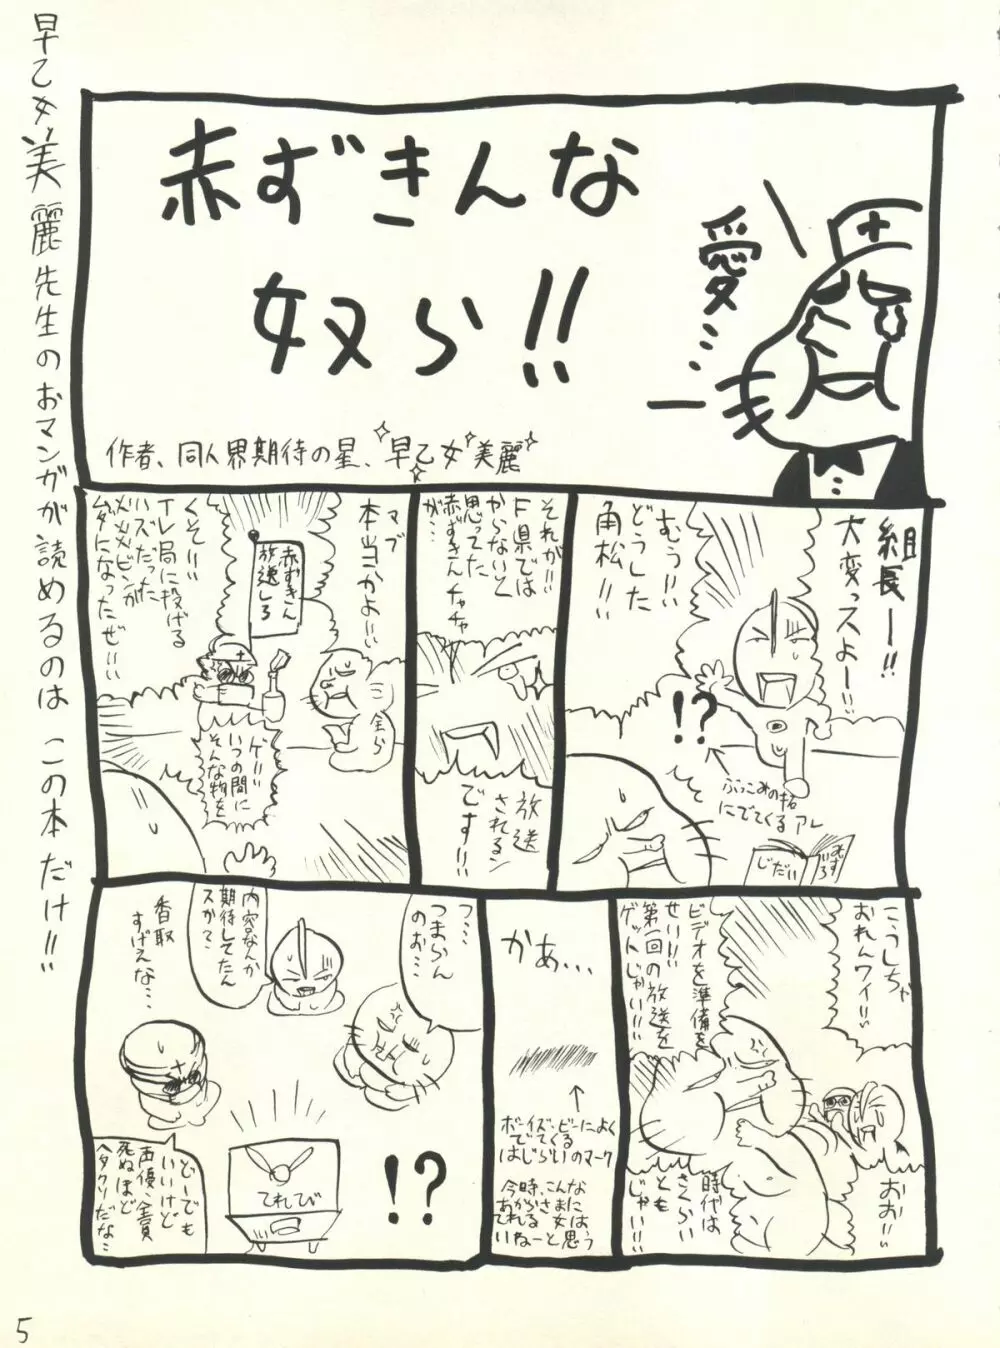 早乙女美麗先生のおマンガが読めるのは この本だけ!!
赤ずきんな
奴ら!!
愛…
作者、同人界期待の星、早乙女美麗
組長ー!!
大変っスよー!!
むぅ!!
どうした
角松!!
!?
ぶっこみの拓
にでてくるアレ
むすい
じだい
それが!!
F県では
やらないと
思ってた
赤ずきんチャチャ
が…
放送
されるン
です!!
マブ
本当かよ!!
赤ずきん
放送しろ
くそ!!
テレ局に投げる
ハズだった
火炎ビンが
ムダになったぜ!!
ゲ!!
いつの間に
そんな物を
こうしちゃ
おれんワイ!!
ビデオを準備を
せい!!
第一回の放送を
ゲットじゃい!!
おお!!
時代は
さくらい
とも
じゃい!!
かあ…
ボーイズ・ビーによく
でてくる
はじらいのマーク
今時、こんな
あからさまに
てれる女は
いねーと思う
つ…
つまらん
のお…
内容なんか
期待してたん
スか?…
香取
すげえな…
てれてび
!?
どーでも
いいけど
声優、全員
死ぬほど
ヘタクソだな…
5